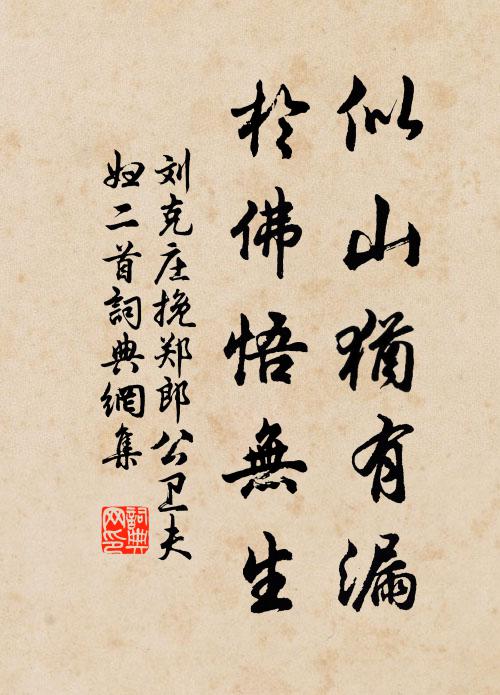 似山猶有漏
於佛悟無生
刘克庄挽郑郎公卫夫
妞二首詞典網集
詞典
网印